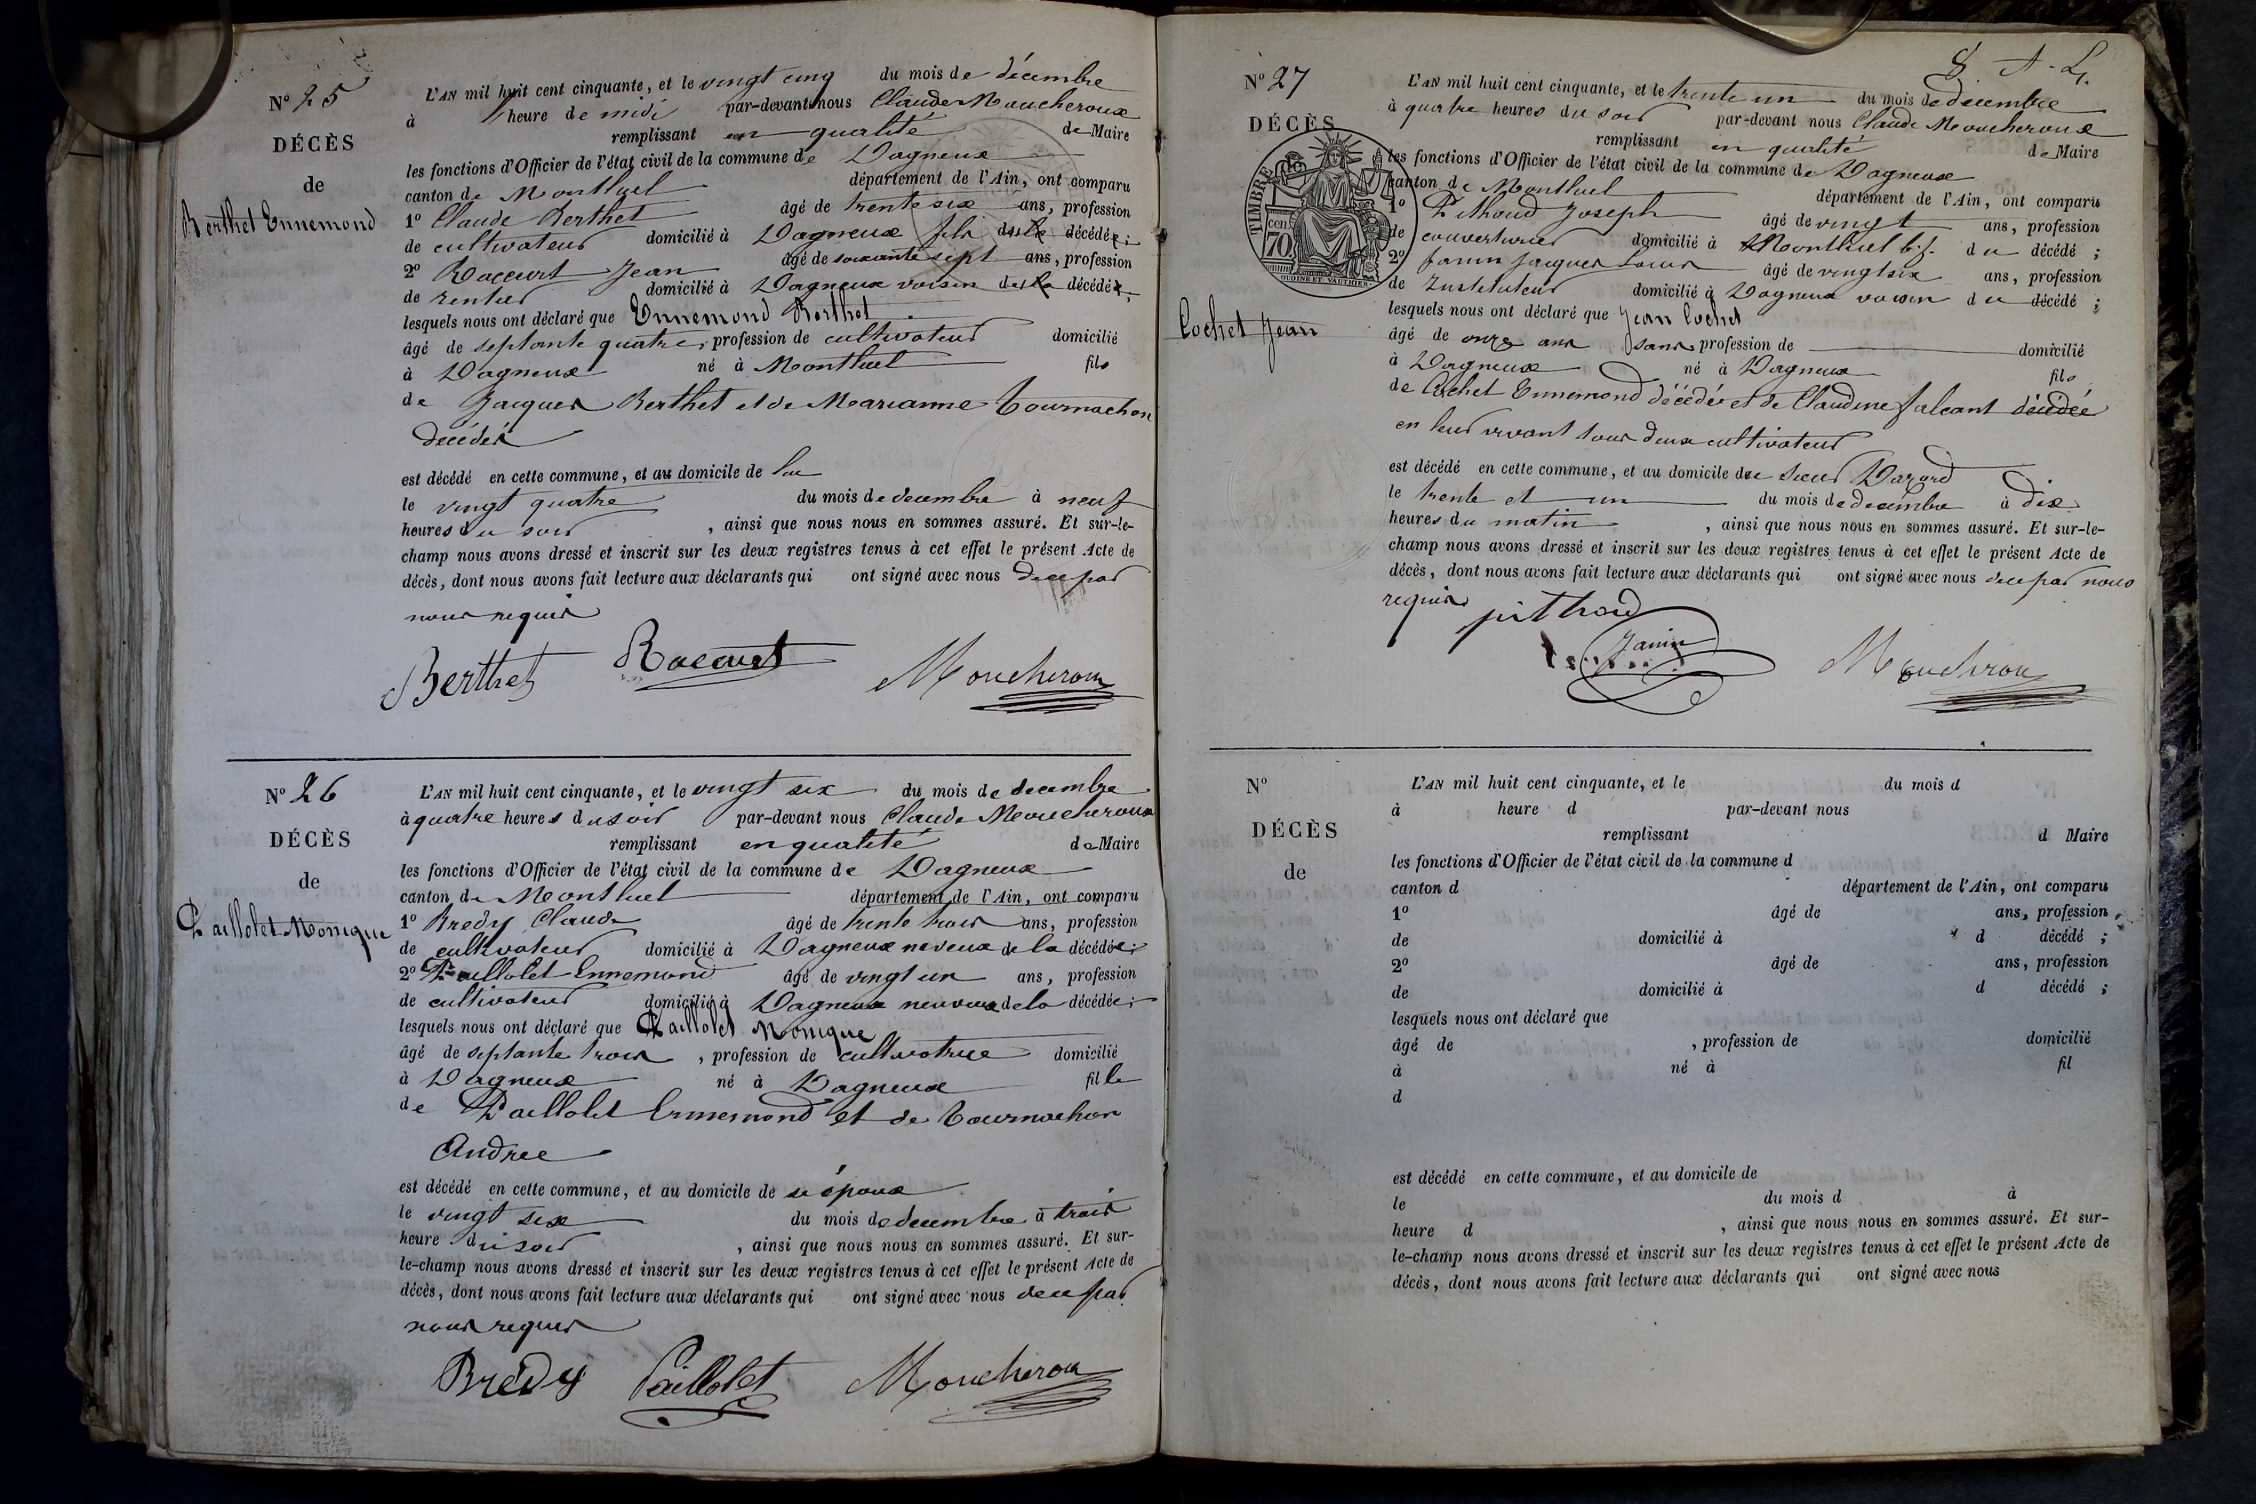 N° 25
DÉCÈS
de
Berthet Ennemond
L'AN mil huit cent cinquante, et le vingt cinq du mois de décembre
à 1 heure de midi par-devant nous Claude Moucheroux
remplissant en qualité de Maire
les fonctions d'Officier de l'état civil de la commune de Dagneux
canton de Montluel département de l'Ain, ont comparu
1° Claude Berthet âgé de trente six ans, profession
de cultivateur domicilié à Dagneux fils du décédé;
2° Racourt Jean âgé de soixante sept ans, profession
de rentier domicilié à Dagneux voisin du décédé;
lesquels nous ont déclaré que Ennemond Berthet
âgé de septante quatre, profession de cultivateur domicilié
à Dagneux né à Montluel fils
de Jacques Berthet et de Marianne Tournachon
décédés
est décédé en cette commune, et au domicile de lui
le vingt quatre du mois de decembre à neuf
heures du soir, ainsi que nous nous en sommes assuré. Et sur-le-
champ nous avons dressé et inscrit sur les deux registres tenus à cet effet le présent Acte de
décès, dont nous avons fait lecture aux déclarants qui ont signé avec nous de ce par
nous requis
Berthet Racourt Moucheroux
N° 26
DÉCÈS
de
Paillolet Monique
L'AN mil huit cent cinquante, et le vingt six du mois de decembre
à quatre heures du soir par-devant nous Claude Moucheroux
remplissant en qualité de Maire
les fonctions d'Officier de l'état civil de la commune de Dagneux
canton de Montluel département de l'Ain, ont comparu
1° Bredy Claude âgé de trente trois ans, profession
de cultivateur domicilié à Dagneux neveux de la décédée;
2° Paillolet Ennemond âgé de vingt un ans, profession
de cultivateur domicilié à Dagneux neuveux de la décédée;
lesquels nous ont déclaré que Paillolet Monique
âgé de septante trois, profession de cultivatrice domicilié
à Dagneux né à Dagneux fille
de Paillolet Ennemond et de Tournachon
Andree
est décédé en cette commune, et au domicile de sé époux
le vingt six du mois de decembre à trois
heure du soir, ainsi que nous nous en sommes assuré. Et sur-
le-champ nous avons dressé et inscrit sur les deux registres tenus à cet effet le présent Acte de
décès, dont nous avons fait lecture aux déclarants qui ont signé avec nous de ce par
nous requis
Brédy Paillolet Moucheroux
N° 27
DÉCÈS
de
TIMBRE
cen
70
Cochet Jean
L'AN mil huit cent cinquante, et le trente un du mois de decembre
à quatre heures du soir par-devant nous Claude Moucheroux
remplissant en qualité de Maire
les fonctions d'Officier de l'état civil de la commune de Dagneux
canton de Montluel département de l'Ain, ont comparu
1° Pithoud Joseph âgé de vingt ans, profession
de couverturier domicilié à Montluel b.f. du décédé;
2° Janin Jacques Louis âgé de vingt six ans, profession
de Instituteur domicilié à Dagneux voisin du décédé;
lesquels nous ont déclaré que Jean Cochet
âgé de onze ans sans profession de domicilié
à Dagneux né à Dagneux fils
de Cochet Ennemond décédé et de Claudine falcant décédée
en leur vivant tous deux cultivateur
est décédé en cette commune, et au domicile du sieur Dazard
le trente et un du mois de decembre à dix
heures du matin, ainsi que nous nous en sommes assuré. Et sur-le-
champ nous avons dressé et inscrit sur les deux registres tenus à cet effet le présent Acte de
décès, dont nous avons fait lecture aux déclarants qui ont signé avec nous de ce par nous
requis
pithoud Janin Moucheroux
N°
DÉCÈS
de
L'AN mil huit cent cinquante, et le du mois d
à heure d par-devant nous
remplissant d Maire
les fonctions d'Officier de l'état civil de la commune d
canton d département de l'Ain, ont comparu
1° âgé de ans, profession
de domicilié à d décédé;
2° âgé de ans, profession
de domicilié à d décédé;
lesquels nous ont déclaré que
âgé de, profession de domicilié
à né à fil
d
est décédé en cette commune, et au domicile de
le du mois d à
heure d, ainsi que nous nous en sommes assuré. Et sur-
le-champ nous avons dressé et inscrit sur les deux registres tenus à cet effet le présent Acte de
décès, dont nous avons fait lecture aux déclarants qui ont signé avec nous